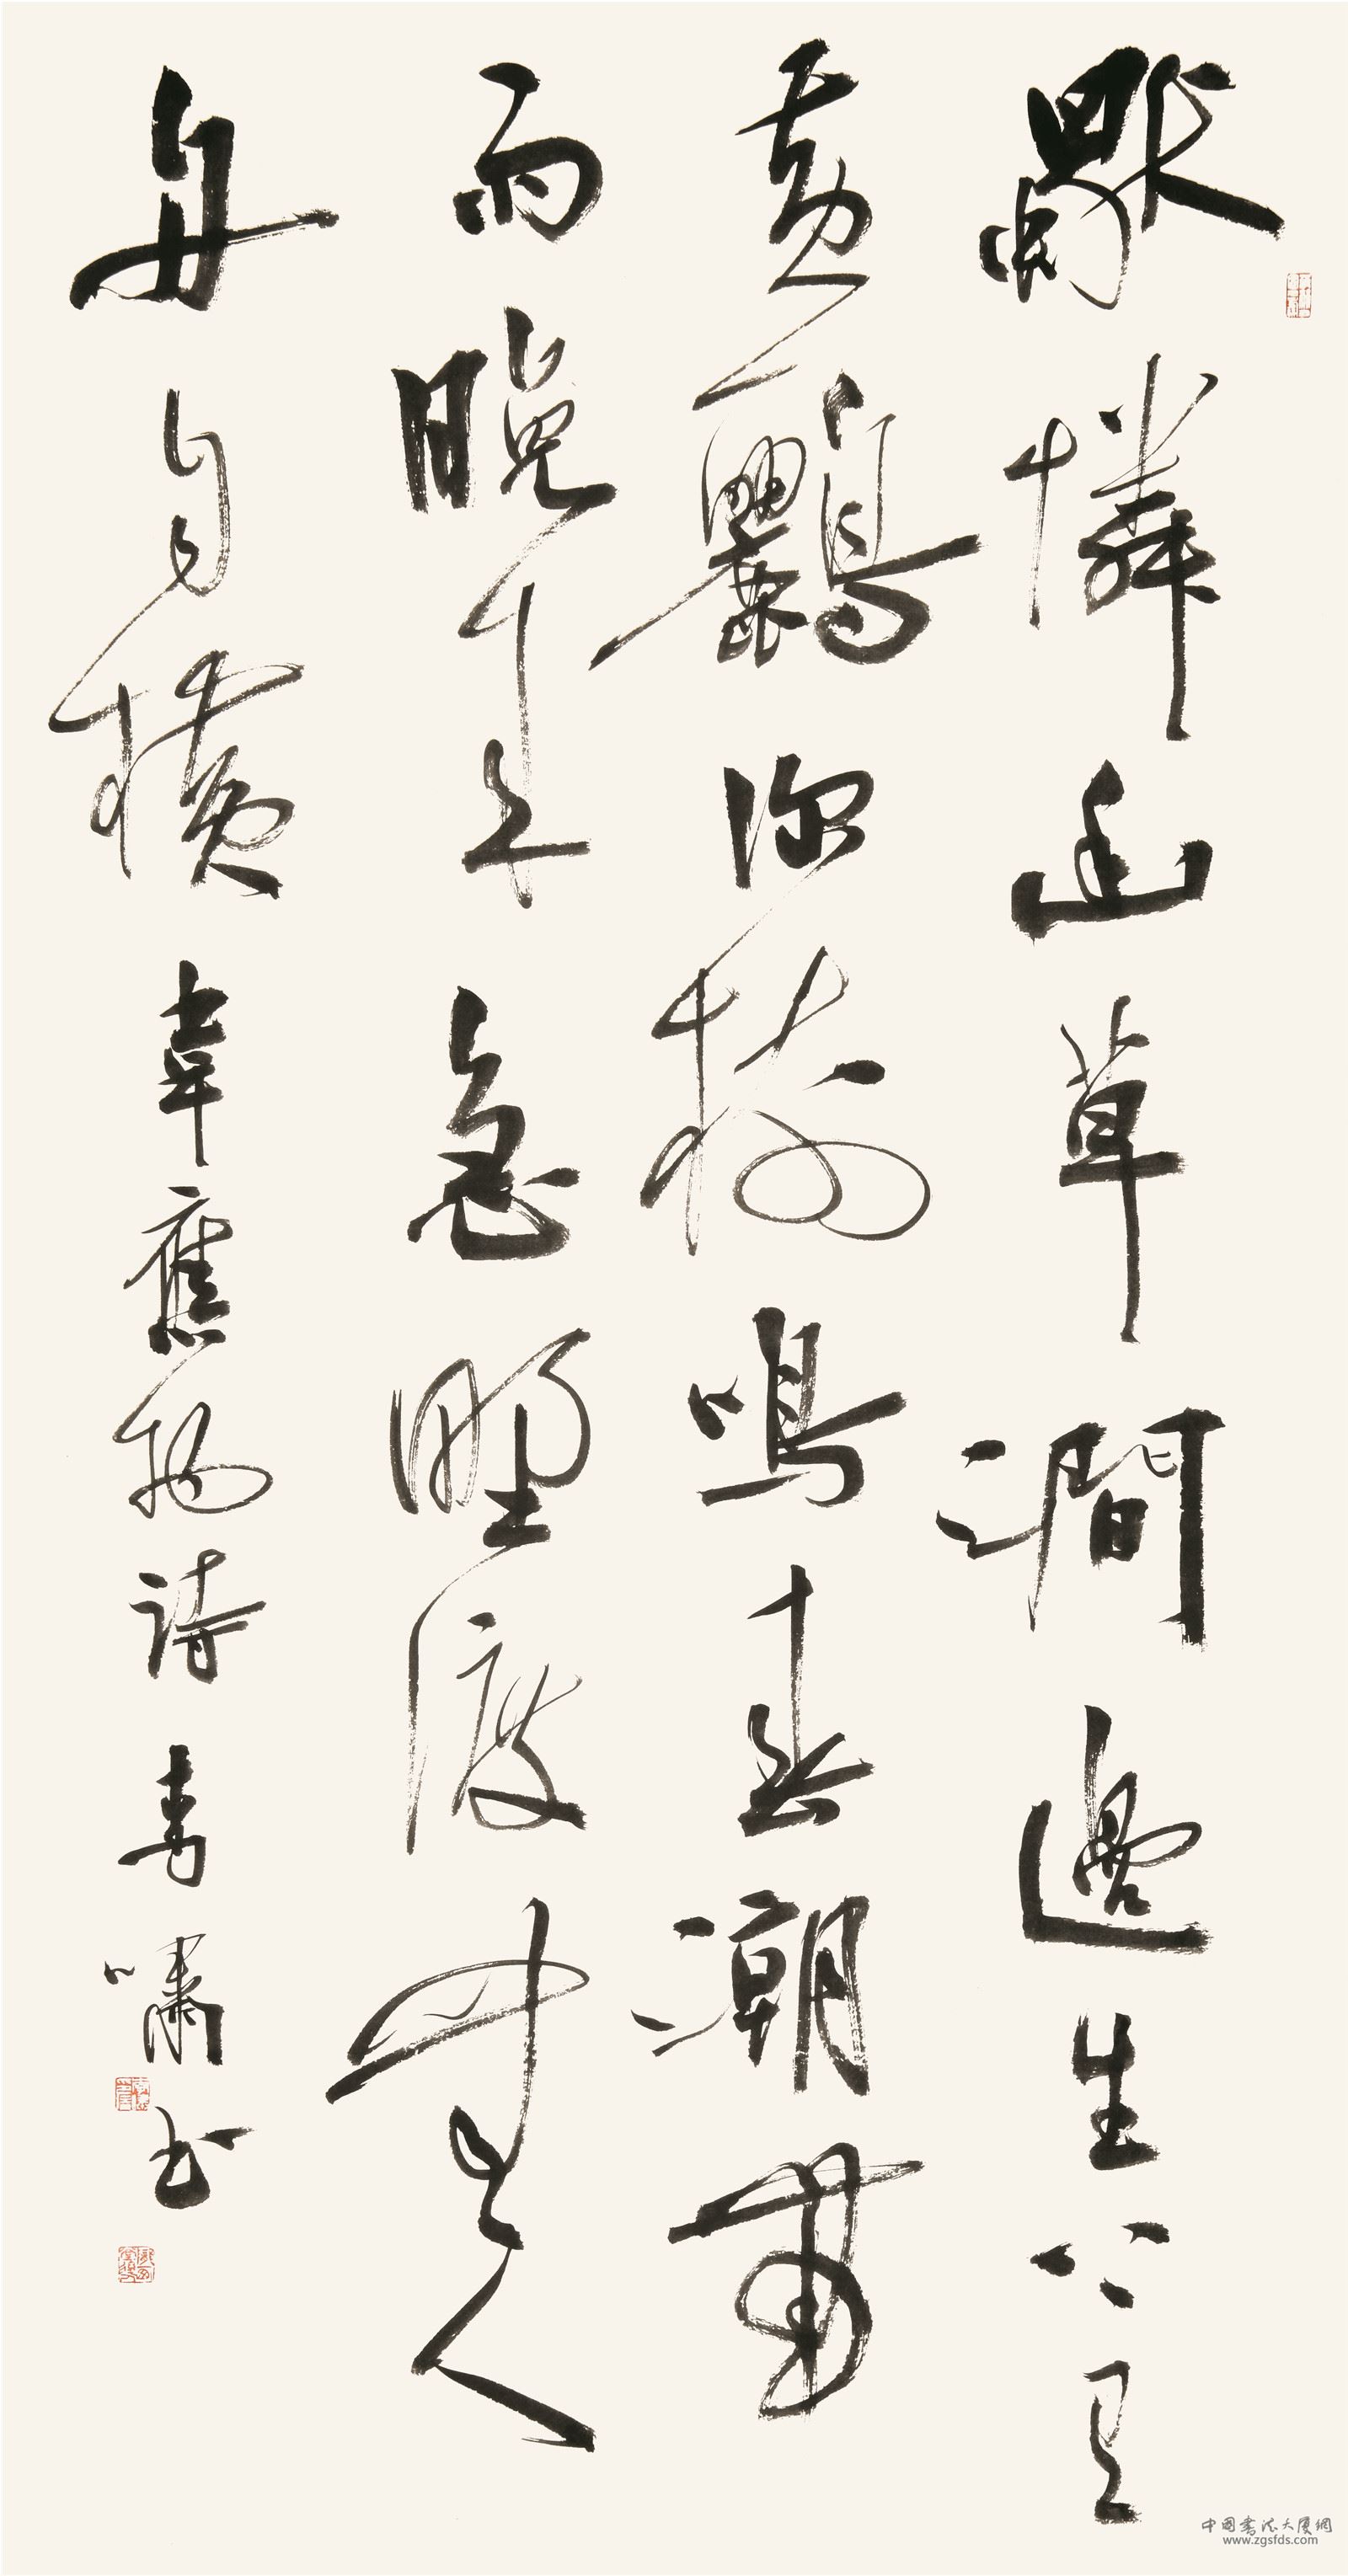 獨憐幽草澗邊生上有
黃鸝深樹鳴春潮帶
雨晚來急野渡無人
舟自橫 韋應物詩 李嘯书
中国书法大厦網
www.zgsfds.com